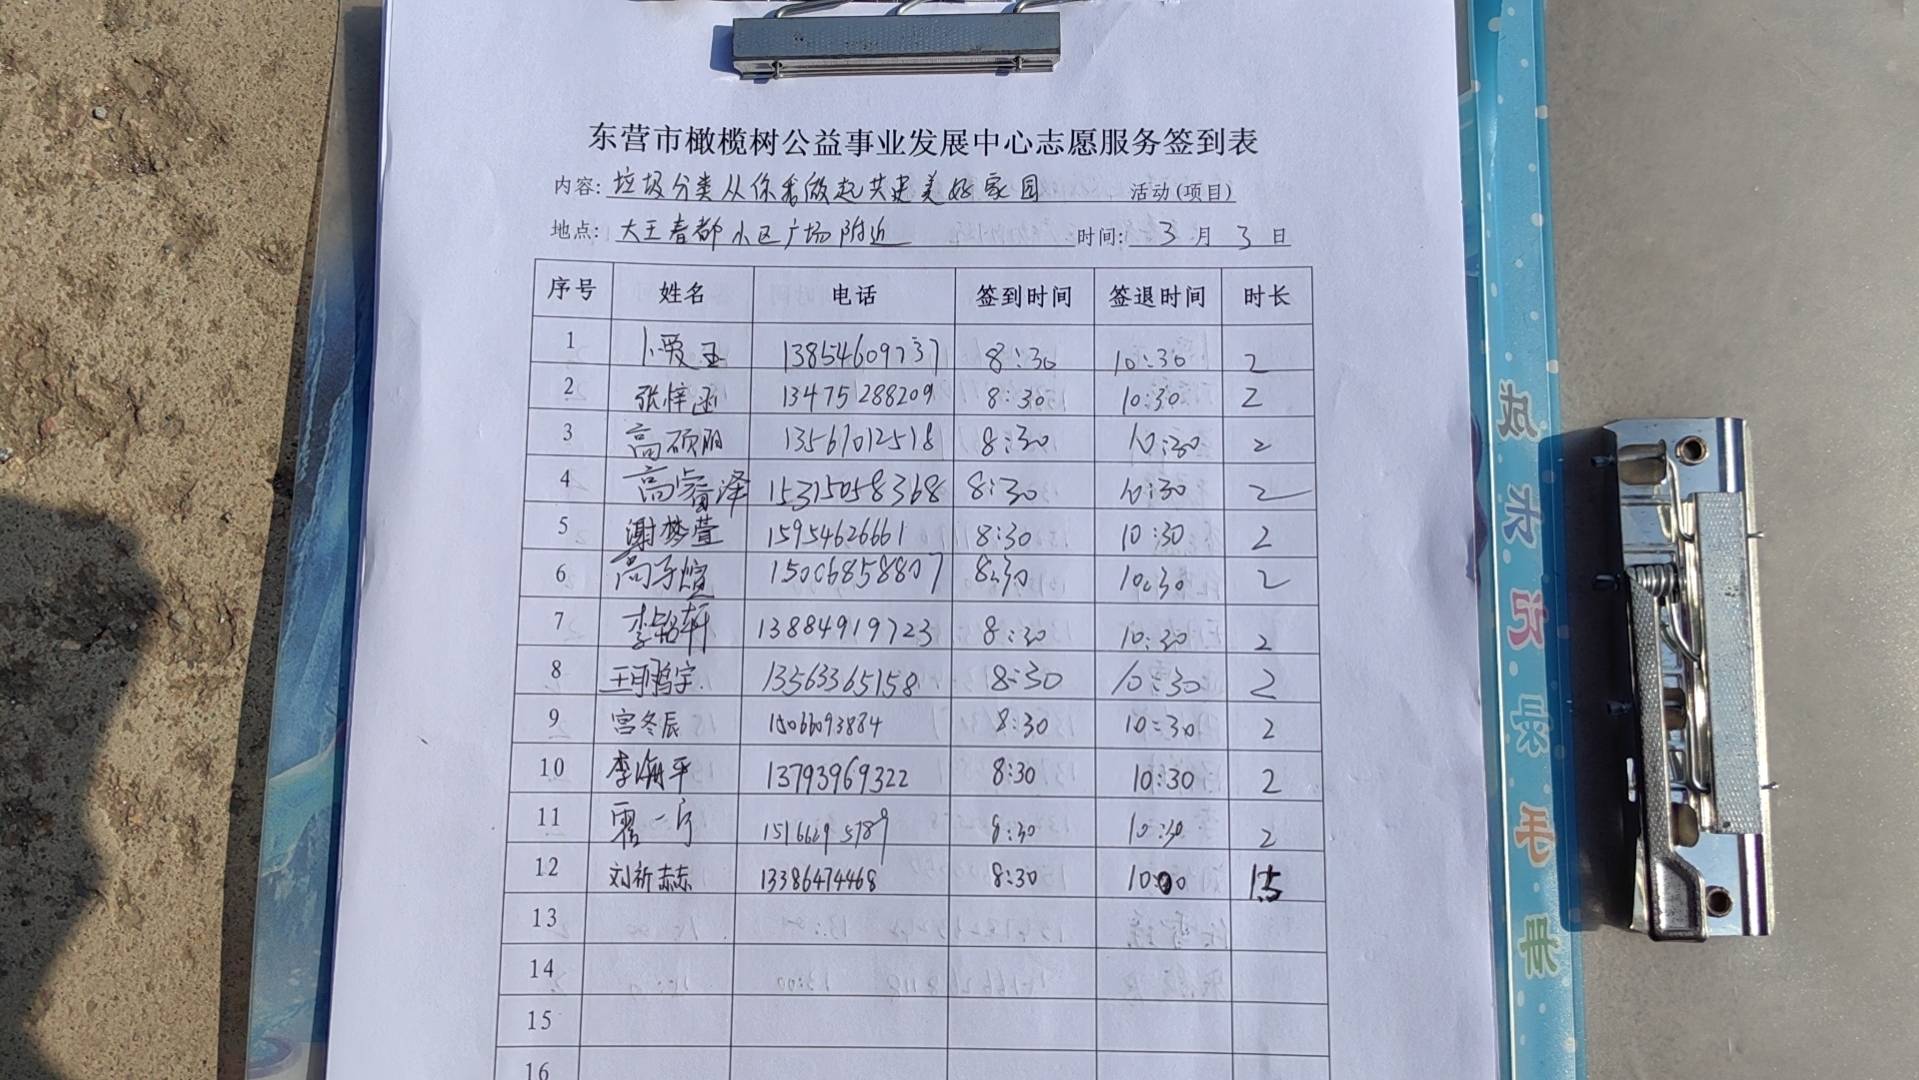 东营市橄榄树公益事业发展中心志愿服务签到表
内容: 垃圾分类从你我做起共建美好家园 活动(项目)
地点: 大王春都小区广场附近 时间: 3 月 3 日
序号 姓名 电话 签到时间 签退时间 时长
1 卜爱玉 13854609737 8:30 10:30 2
2 张梓函 13475288209 8:30 10:30 2
3 高硕阳 13561012518 8:30 10:30 2
4 高睿泽 15315058368 8:30 10:30 2
5 谢梦萱 15954626661 8:30 10:30 2
6 高子煊 15006858807 8:30 10:30 2
7 李铭轩 13884919723 8:30 10:30 2
8 王鹏宇 13563365158 8:30 10:30 2
9 宫冬辰 15066093884 8:30 10:30 2
10 李海平 13793969322 8:30 10:30 2
11 霍一宁 8:30 10:30 2
12 刘祈赫 13386474468 8:30 10:00 1.5
13
14
15
16
成长记录手册